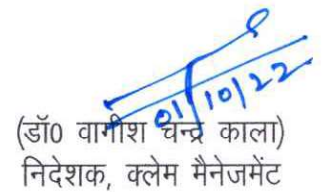 01/10/22
(डॉ0 वागीश चन्द्र काला)
निदेशक, क्लेम मैनेजमेंट